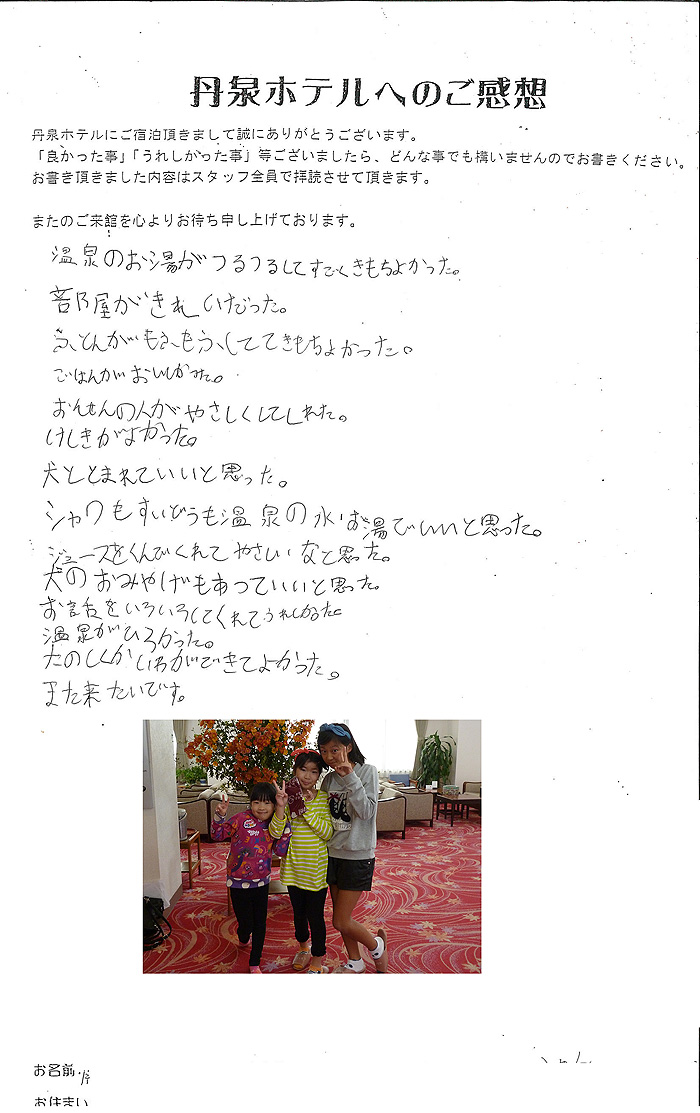 丹泉ホテルへのご感想
丹泉ホテルにご宿泊頂きまして誠にありがとうございます。
「良かった事」「うれしかった事」等ございましたら、どんな事でも構いませんのでお書きください。
お書き頂きました内容はスタッフ全員で拝読させて頂きます。
またのご来館を心よりお待ち申し上げております。
温泉のお湯がつるつるしてすごくきもちよかった。
部屋がきれいだった。
ふとんがもふもふしててきもちよかった。
ごはんがおいしかった。
おんせんの人がやさしくしてくれた。
けしきがよかった。
犬ととまれていいと思った。
シャワもすいどうも温泉の水・お湯でいいと思った。
ジュースをくんでくれてやさいなと思った。
犬のおみやげもあっていいと思った。
お話をいろいろしてくれてうれしかった
温泉がひろかった。
たのしくかいわができてよかった。
また来たいです。
お名前
お住まい